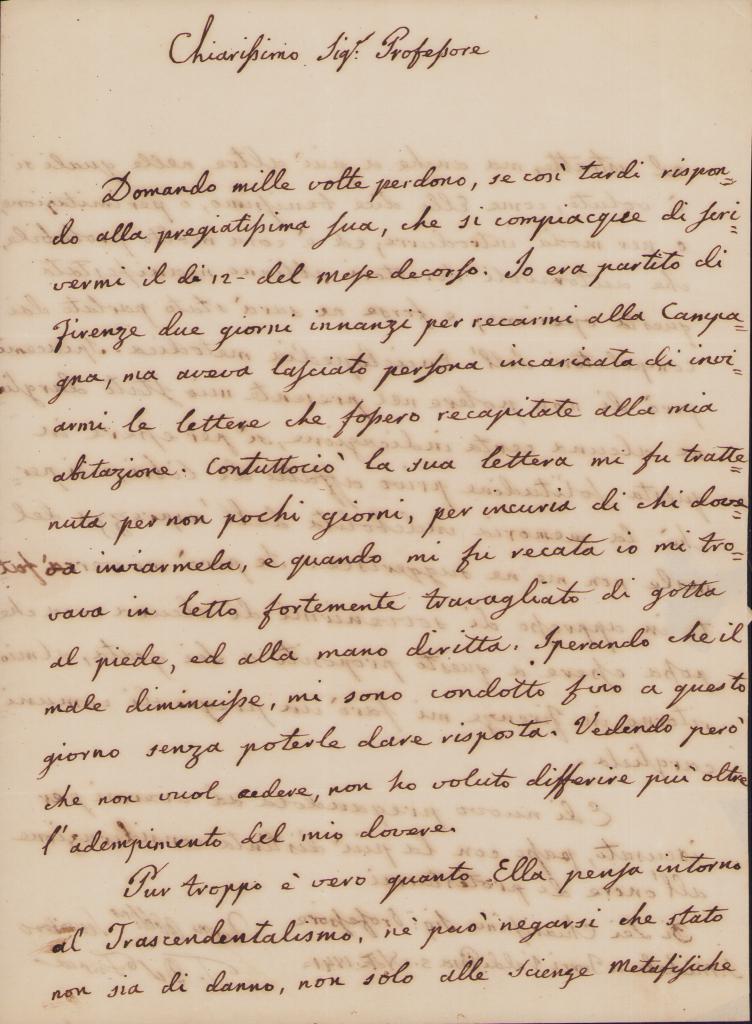 Chiarissimo Sigr. Professore
Domando mille volte perdono, se così tardi rispon=
do alla pregiatissima sua, che si compiacque di scri=
vermi il di 12 - del mese decorso. Io era partito di
Firenze due giorni innanzi per recarmi alla Campa=
gna, ma aveva lasciato persona incaricata di invi=
armi le lettere che fossero recapitate alla mia
abitazione. Contuttociò la sua lettera mi fu tratte=
nuta per non pochi giorni, per incuria di chi dove=
va inviarmela, e quando mi fu recata io mi tro=
vava in letto fortemente travagliato di gotta
al piede, ed alla mano diritta. Sperando che il
male diminuisse, mi sono condotto fino a questo
giorno senza poterle dare risposta. Vedendo però
che non vuol cedere, non ho voluto differire più oltre
l'adempimento del mio dovere.
Pur troppo è vero quanto Ella pensa intorno
al Trascendentalismo, nè può negarsi che stato
non sia di danno, non solo alle scienze Metafisiche